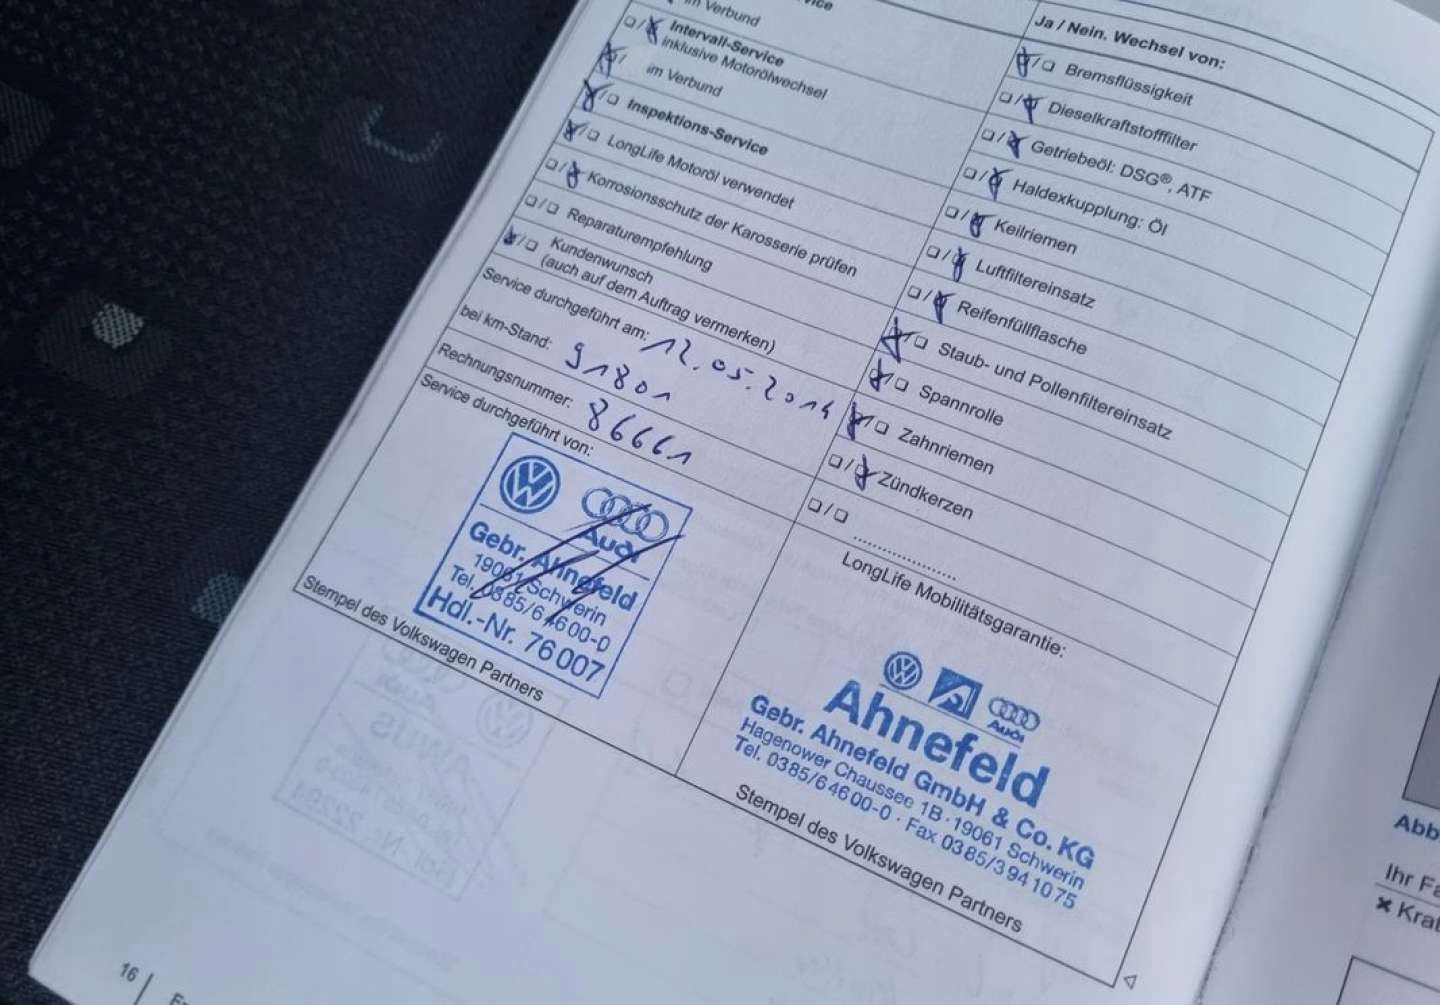 im Verbund
Intervall-Service
inklusive Motorölwechsel
im Verbund
Inspektions-Service
LongLife Motoröl verwendet
Korrosionsschutz der Karosserie prüfen
Reparaturempfehlung
Kundenwunsch
(auch auf dem Auftrag vermerken)
Service durchgeführt am: 12.05.2014
bei km-Stand: 91801
Rechnungsnummer: 86661
Service durchgeführt von:
Audi
Gebr. Ahnefeld
19061 Schwerin
Tel. 0385/64600-0
Hdl.-Nr. 76007
Stempel des Volkswagen Partners
Ja / Nein. Wechsel von:
Bremsflüssigkeit
Dieselkraftstofffilter
Getriebeöl: DSG®, ATF
Haldexkupplung: Öl
Keilriemen
Luftfiltereinsatz
Reifenfüllflasche
Staub- und Pollenfiltereinsatz
Spannrolle
Zahnriemen
Zündkerzen
LongLife Mobilitätsgarantie:
Audi
Ahnefeld
Gebr. Ahnefeld GmbH & Co. KG
Hagenower Chaussee 1B · 19061 Schwerin
Tel. 0385/64600-0 · Fax 0385/3941075
Stempel des Volkswagen Partners
16
Abb
Ihr Fa
Krat